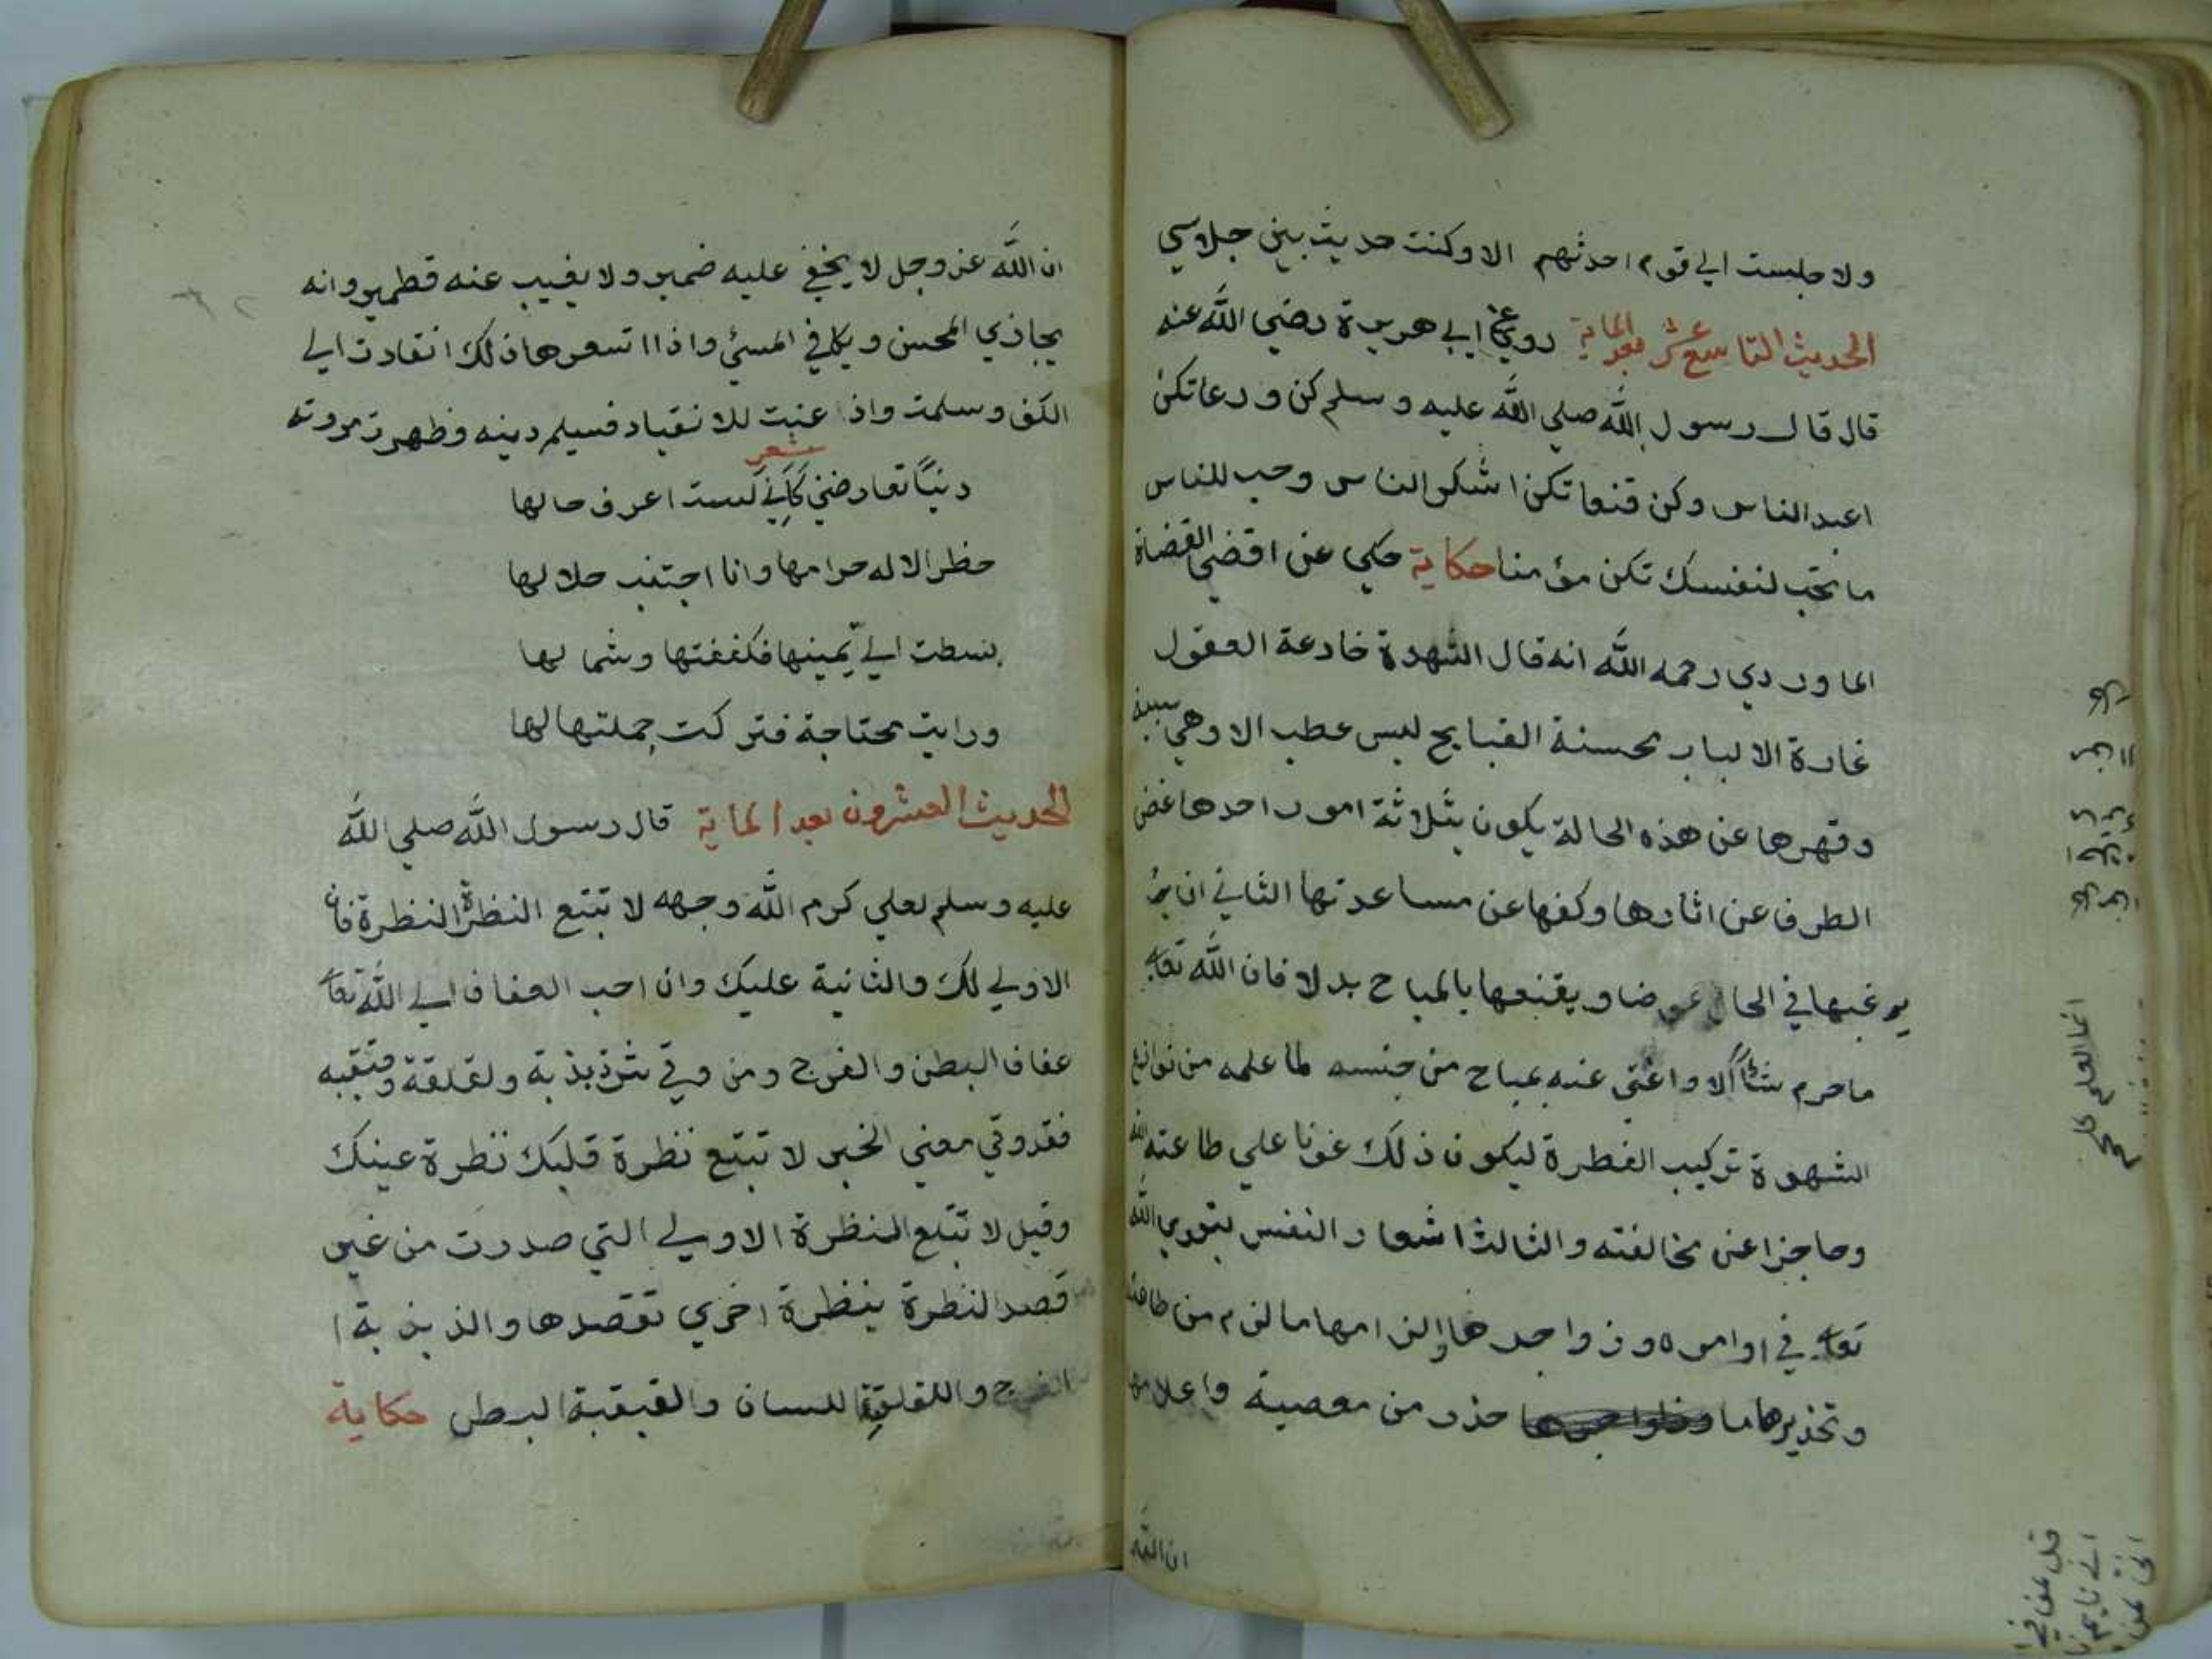 ولا جلست الي قوم احدثهم الا وكنت حديث بين جلاسي
الحديث التاسع عشر بعد الماية روي عن ابي هريرة رضي الله عنه
قال قال رسول الله صلي الله عليه وسلم كن ورعا تكن
اعبد الناس وكن قنعا تكن اشكر الناس وحب للناس
ما تحب لنفسك تكن مؤمنا حكاية حكي عن اقضي القضاة
الماوردي رحمه الله انه قال الشهوة خادعة العقول
غادرة الالباب محسنة القبايح ليس عطب الا وهي سببه
وقهرها عن هذه الحالة يكون بثلاثة امور احدها غض
الطرف عن اثارها وكفها عن مساعدتها الثاني ان
يرغبها في الحلال عوضا ويقنعها بالمباح بدلا فان الله تعا
ما حرم شئا الا واغني عنه بمباح من جنسه لما علمه من نوازع
الشهوة تركيب الفطرة ليكون ذلك عونا علي طاعته
وحاجزا عن مخالفته والثالث اشعار النفس بتقوي الله
تعا في اوامره وزواجرها والزامها ما لزم من طاعته
وتحذيرها ما حذر من معصية واعلامها
ان الله
ان الله عز وجل لا يخفي عليه ضمير ولا يغيب عنه قطمير وانه
يجازي المحسن ويكافي المسئ واذا اتسعرها ذلك انقادت الي
الكف وسلمت واذ عنت للانقياد فسيلم دينه وظهرت مروته
شعر
دنيا تعارضني كاني لست اعرف حالها
حظر الاله حرامها وانا اجتنب حلالها
بسطت الي يمينها فكففتها وشمالها
ورايت محتاجة فتركت جملتها لها
الحديث العشرون بعد الماية قال رسول الله صلي الله
عليه وسلم لعلي كرم الله وجهه لا تتبع النظرة النظرة فان
الاولي لك والثانية عليك وان احب العفاف الي الله تعا
عفاف البطن والفرج ومن وقي شر ذبذبه ولقلقة وقبقبه
فقد وقي معني الخبر لا تتبع نظرة قلبك نظرة عينك
وقيل لا تتبع النظرة الاولي التي صدرت من غير
قصد النظرة بنظرة اخري تقصدها والذبذبة
الفرج واللقلقة اللسان والقبقبة البطن حكاية